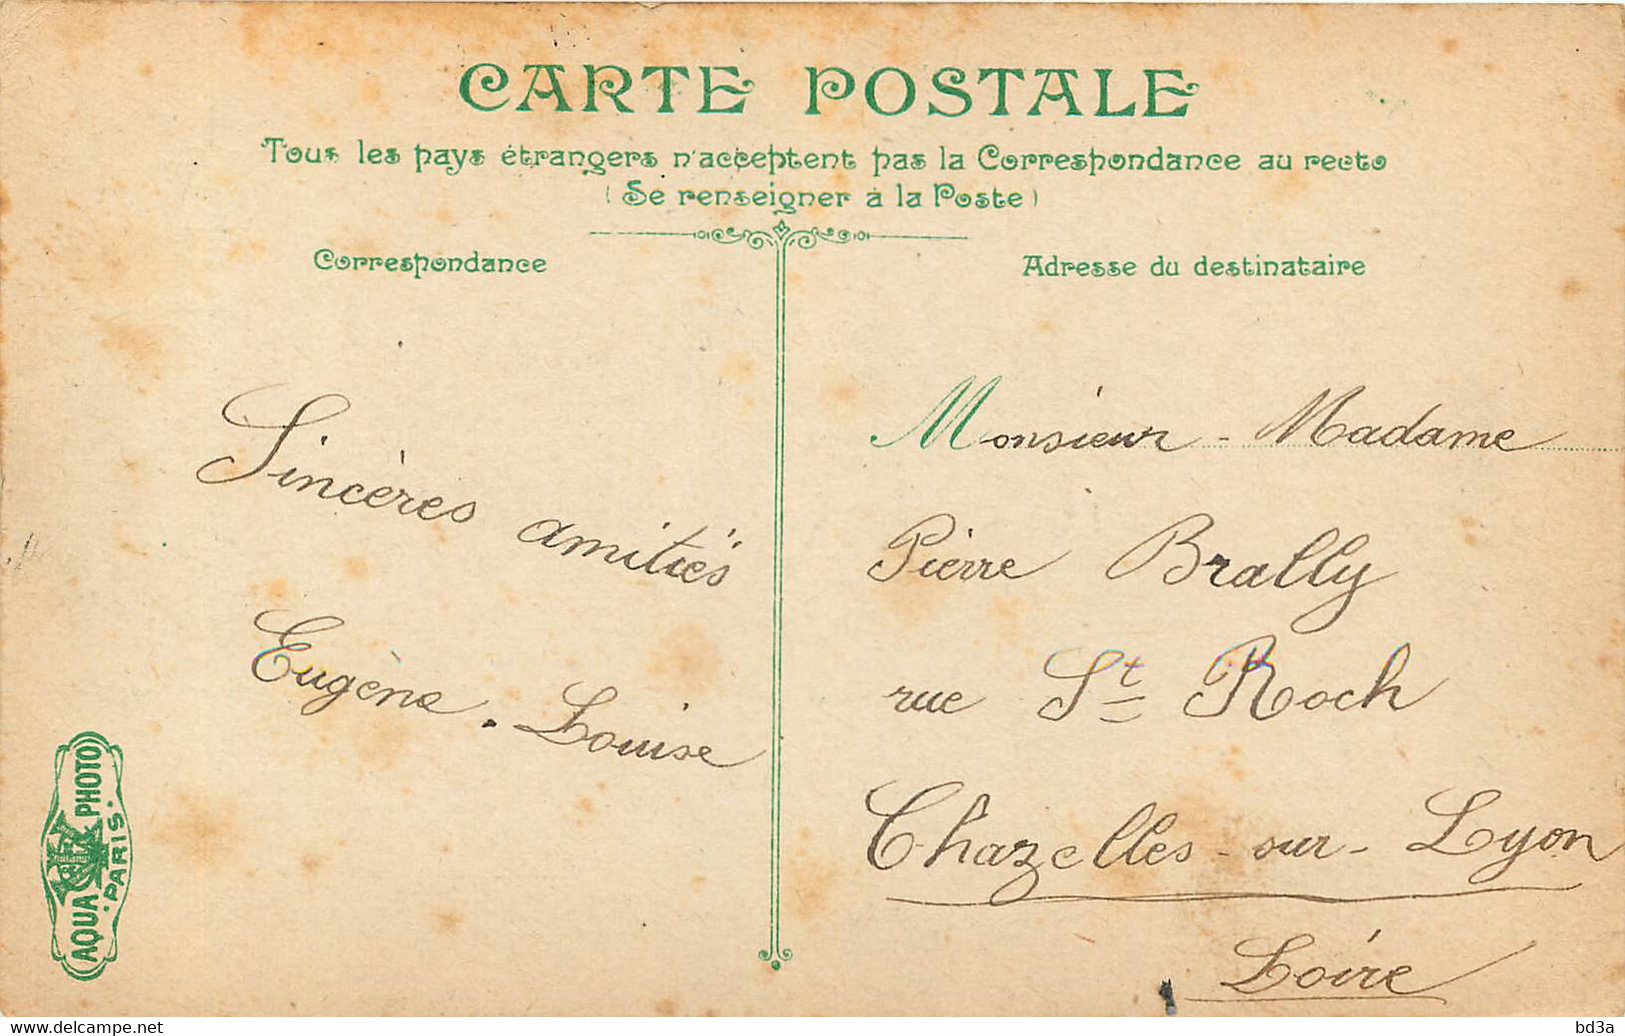 CARTE POSTALE
Tous les pays étrangers n'acceptent pas la Correspondance au recto
(Se renseigner à la Poste)
Correspondance
Sincères amitiés
Eugène. Louise
Adresse du destinataire
Monsieur - Madame
Pierre Brally
rue St Roch
Chazelles-sur-Lyon
Loire
AQUA PHOTO
PARIS
www.delcampe.net
bd3a